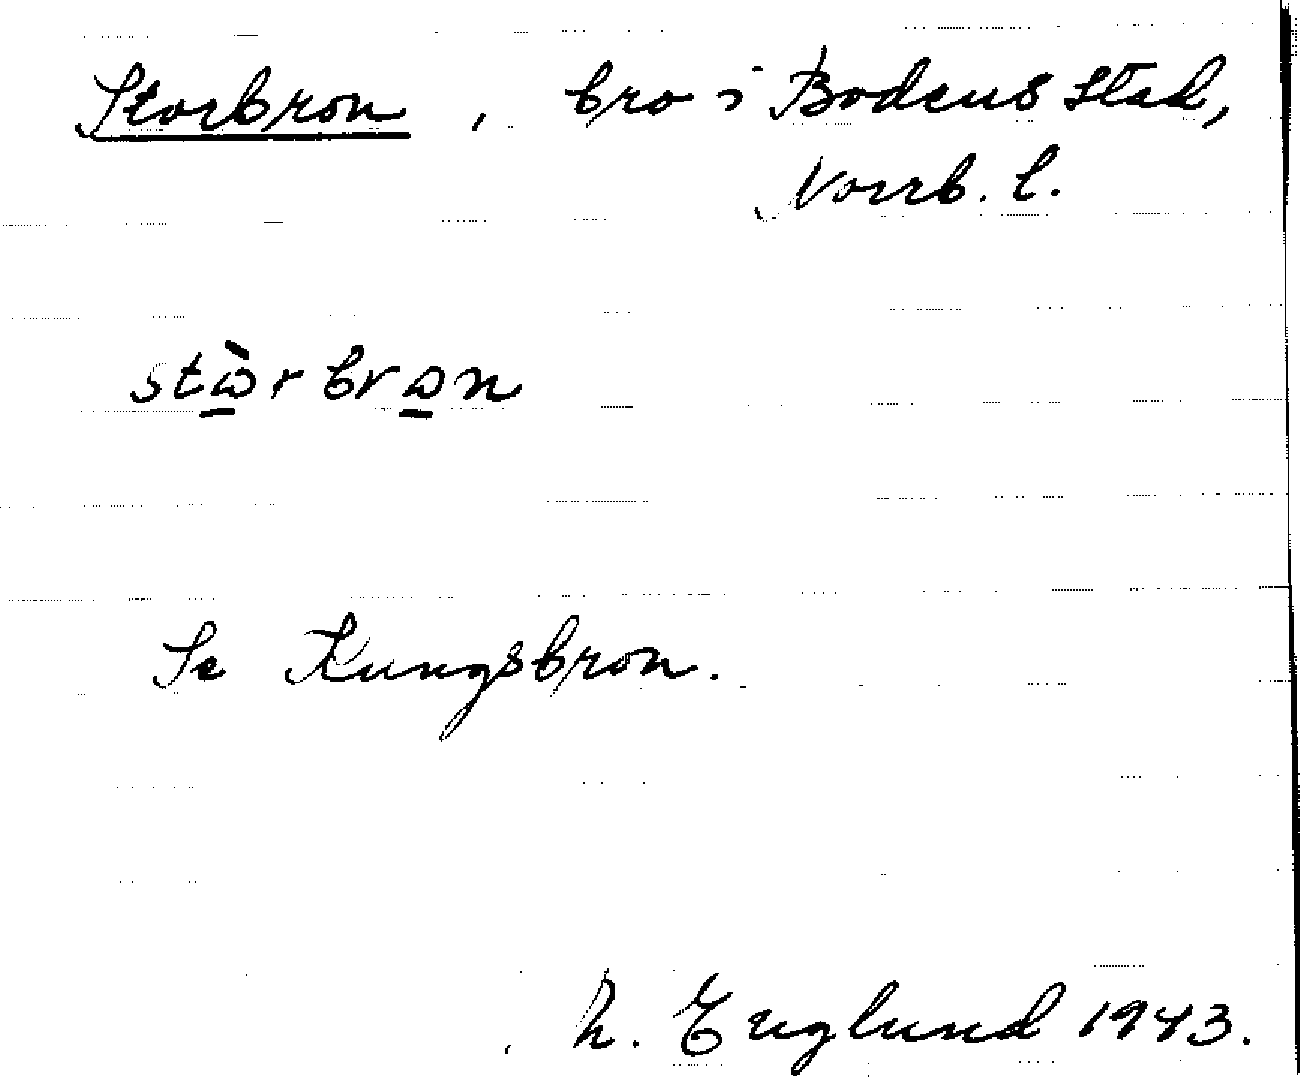 Storbron, bro i Bodens stad,
Norrb. l.
stὼ̱rbrω̱n
Se Kungsbron.
h. Englund 1943.